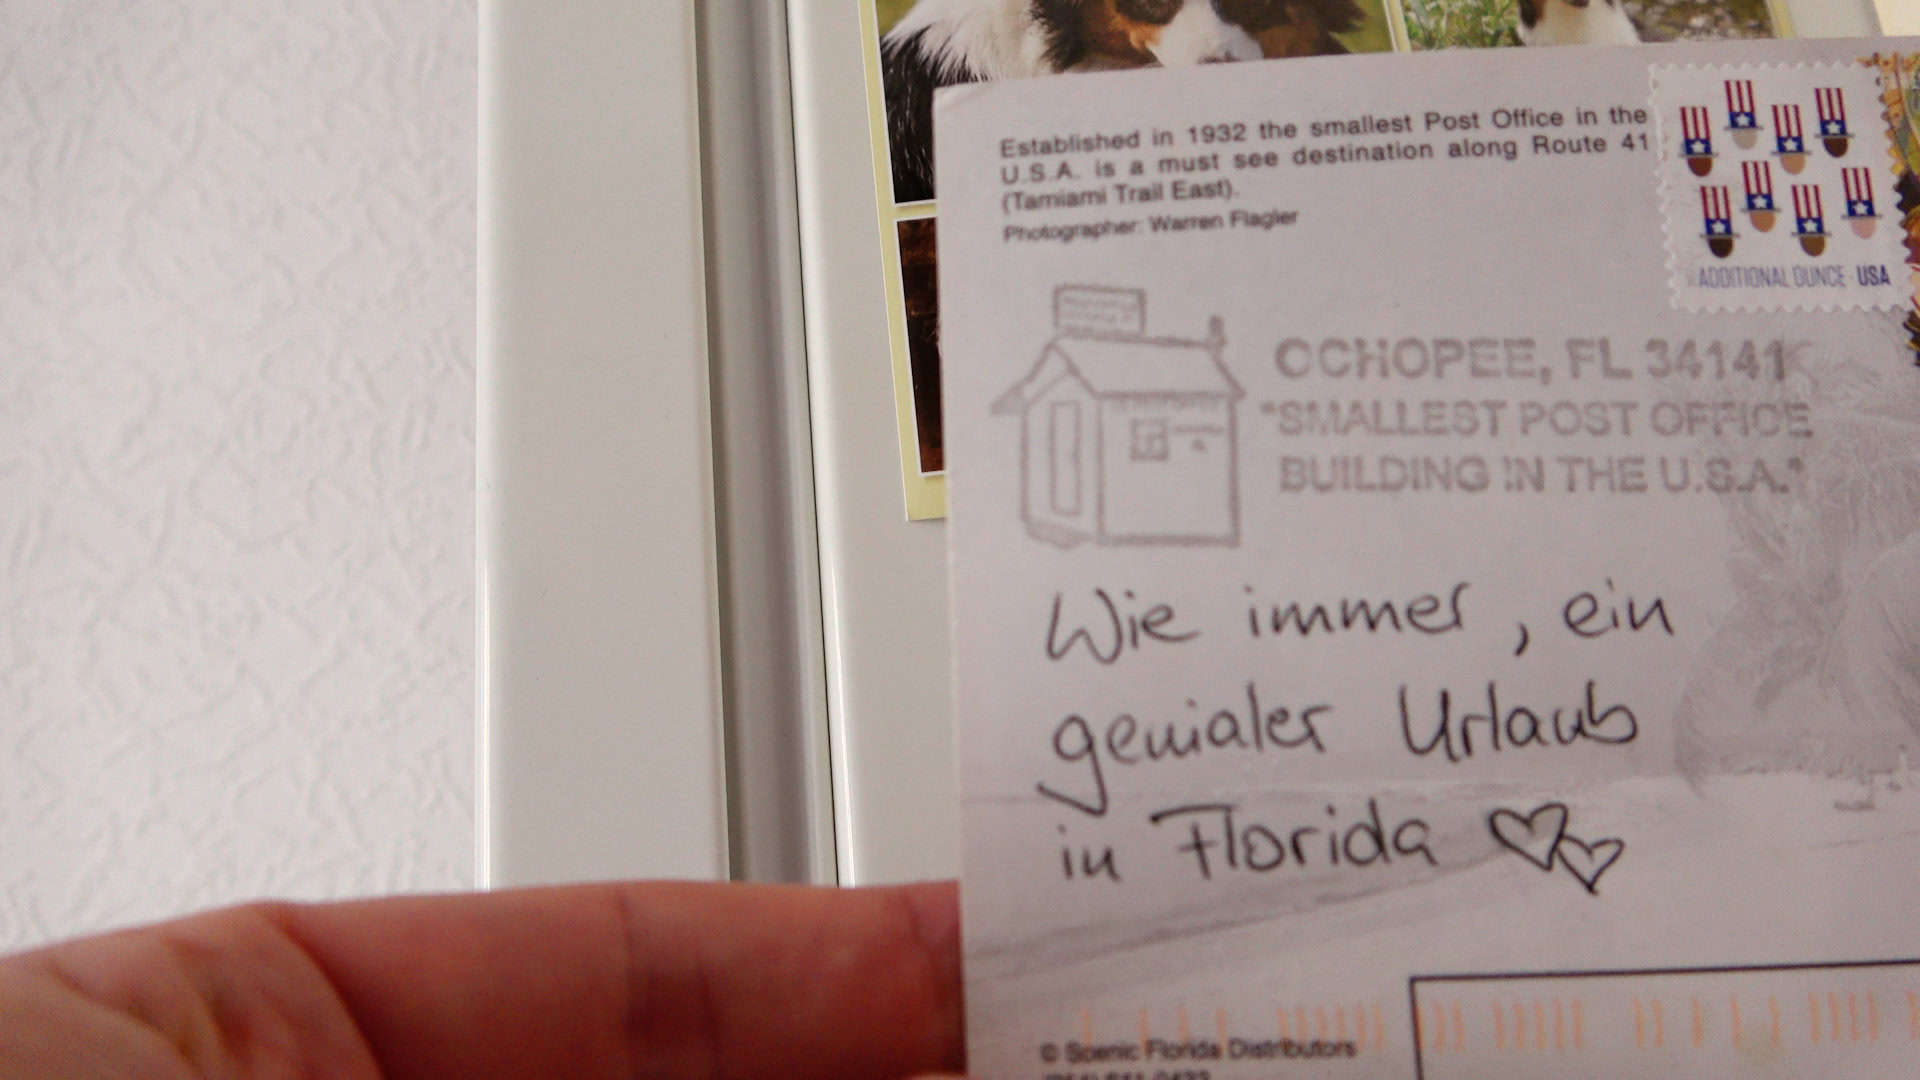 Established in 1932 the smallest Post Office in the
U.S.A. is a must see destination along Route 41
(Tamiami Trail East).
Photographer: Warren Flagler
ADDITIONAL OUNCE · USA
OCHOPEE, FL 34141
"SMALLEST POST OFFICE
BUILDING IN THE U.S.A."
Wie immer, ein
genialer Urlaub
in Florida
© Scenic Florida Distributors